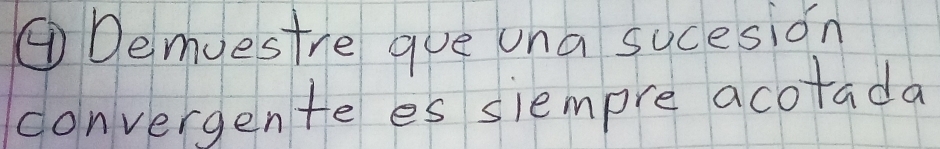 ④ Demuestre que una sucesión
convergente es siempre acotada